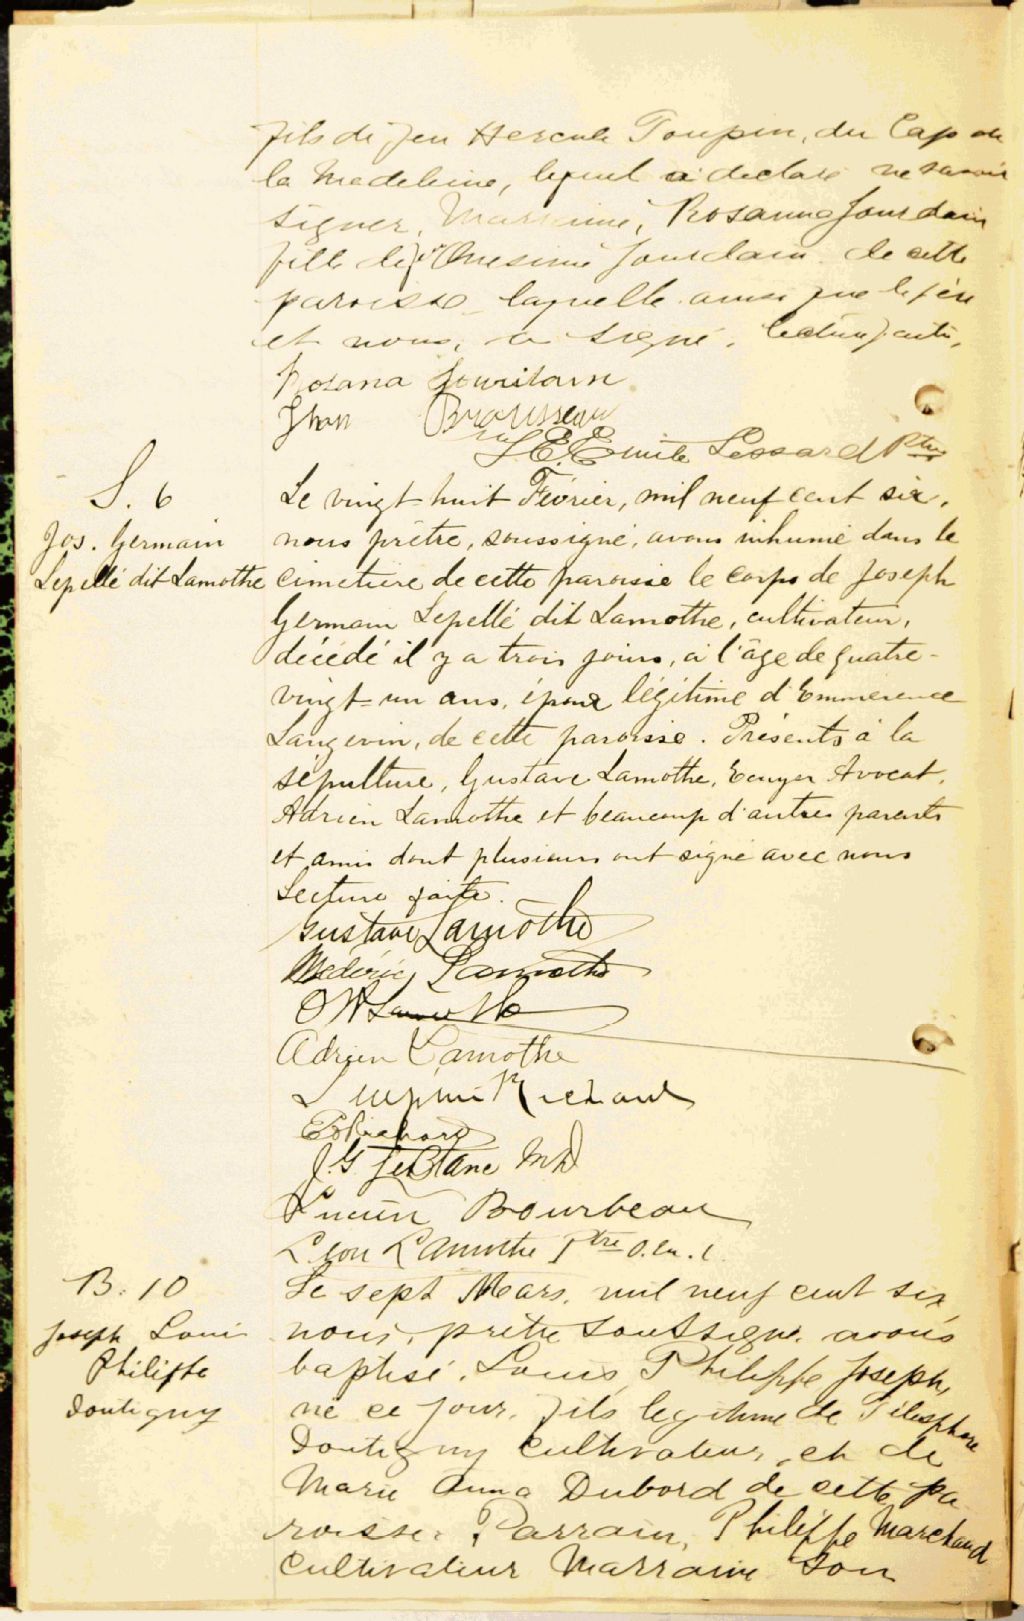 fils de feu Hercule Toupin, du Cap de
la Madeleine, lequel a déclaré ne savoir
signer, Marraine, Rosanna Jourdain
fille de feu Onesime Jourdain de cette
paroisse laquelle ainsi que le père
et nous, a signé, lecture faite,
Rosana Jourdain
Jhon Brousseau
J. E. Emile Lessard Ptre
S. 6
Jos. Germain
Lepellé dit Lamothe
Le vingt-huit Février, mil neuf cent six,
nous prêtre, soussigné, avons inhumé dans le
cimetière de cette paroisse le corps de Joseph
Germain Lepellé dit Lamothe, cultivateur,
décédé il y a trois jours, à l'âge de quatre-
vingt-un ans, époux légitime d'Emmérence
Langevin, de cette paroisse. Présents à la
sépulture, Gustave Lamothe, Ecuyer Avocat,
Adrien Lamothe et beaucoup d'autres parents
et amis dont plusieurs ont signé avec nous
Lecture faite.
Gustave Lamothe
Médéric Lamothe
O W Lamothe
Adrien Lamothe
Richard
E Richard
J. G. LeBlanc M D
Lucien Bourbeau
Léon Lamothe Ptre O. M. I.
B. 10
Joseph Louis
Philippe
Doutigny
Le sept Mars, mil neuf cent six
nous, prêtre soussigné, avons
baptisé, Louis Philippe Joseph,
né ce jour, fils légitime de Télesphore
Doutigny cultivateur, et de
Marie Anna Dubord de cette pa
roisse. Parrain, Philippe Marchand
cultivateur Marraine son